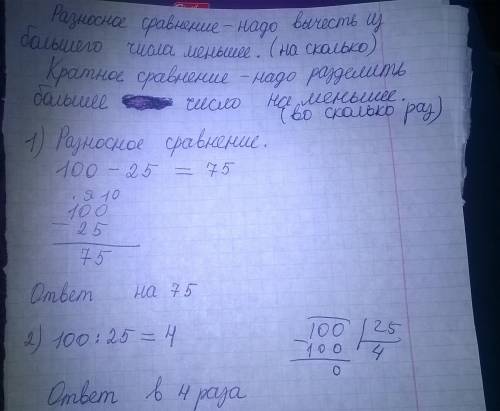 Разносное сравнение - надо вычесть из
большего числа меньшее. (на сколько)
Кратное сравнение - надо разделить
большее число на меньшее.
(во сколько раз)
1) Разносное сравнение.
100 - 25 = 75
. 9 10
100
- 25
75
Ответ на 75
2) 100 : 25 = 4
100 | 25
- 100 | 4
0
Ответ в 4 раза